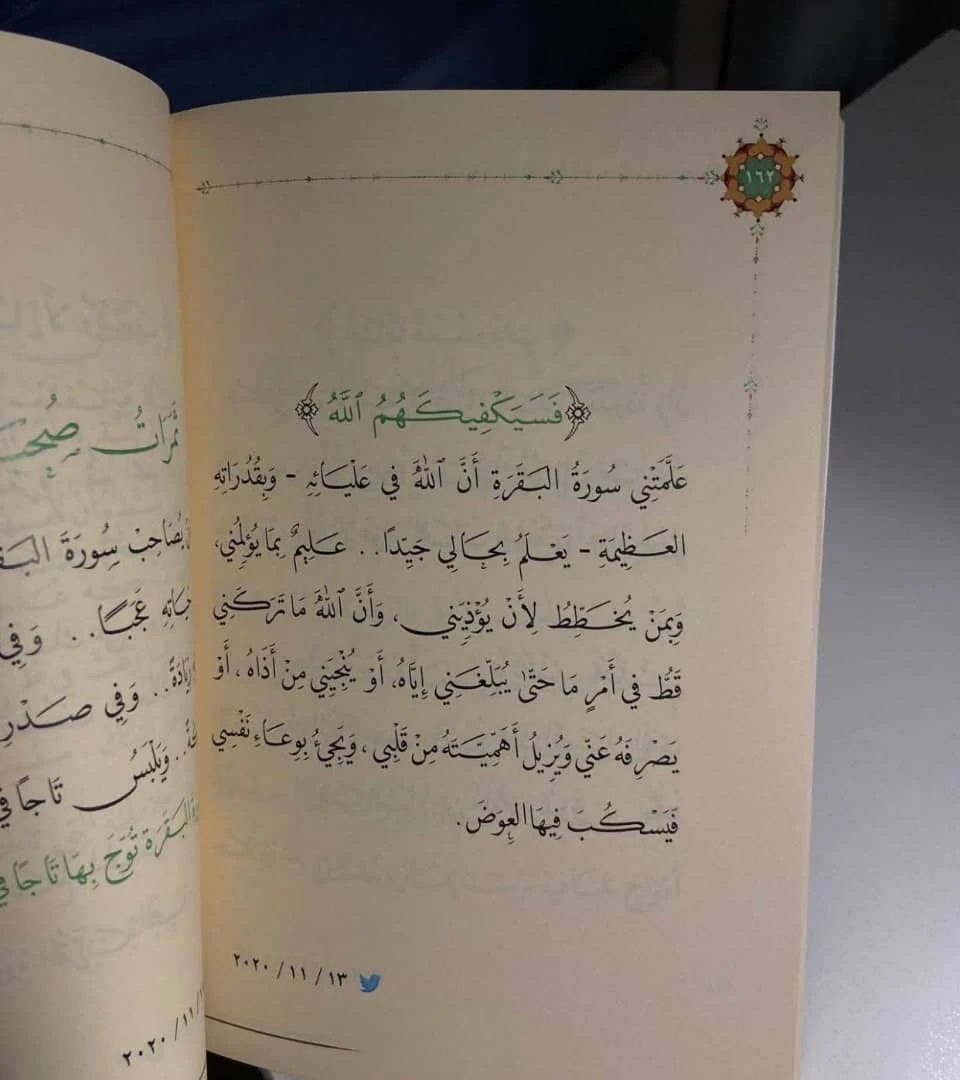 ١٦٢
﴿فَسَيَكْفِيكَهُمُ ٱللَّهُ﴾
عَلَّمَتْنِي سُورَةُ البَقَرَةِ أَنَّ ٱللَّهَ فِي عَلْيَائِهِ - وَبِقُدُرَاتِهِ
العَظِيمَةِ - يَعْلَمُ بِحَالِي جَيِّدًا.. عَلِيمٌ بِمَا يُؤْلِمُنِي،
وَبِمَنْ يُخَطِّطُ لِأَنْ يُؤْذِيَنِي، وَأَنَّ ٱللَّهَ مَا تَرَكَنِي
قَطُّ فِي أَمْرٍ مَا حَتَّى يُبَلِّغَنِي إِيَّاهُ، أَوْ يُنْجِيَنِي مِنْ أَذَاهُ، أَوْ
يَصْرِفَهُ عَنِّي وَيُزِيلُ أَهَمِّيَّتَهُ مِنْ قَلْبِي، وَيَجِيْءُ بِوِعَاءِ نَفْسِي
فَيَسْكُبَ فِيهَا العِوَضَ.
١٣ / ١١ / ٢٠٢٠
ثَمَرَاتُ
يُصَاحِبْ سُورَةَ
عَجَبًا.. وَفِي
وَفِي صَدْرِ
وَيَلْبَسُ تَاجًا فِي
البَقَرَة تُوِّجَ بِهَا تَاجًا فِي
٢٠٢٠ / ١١ /